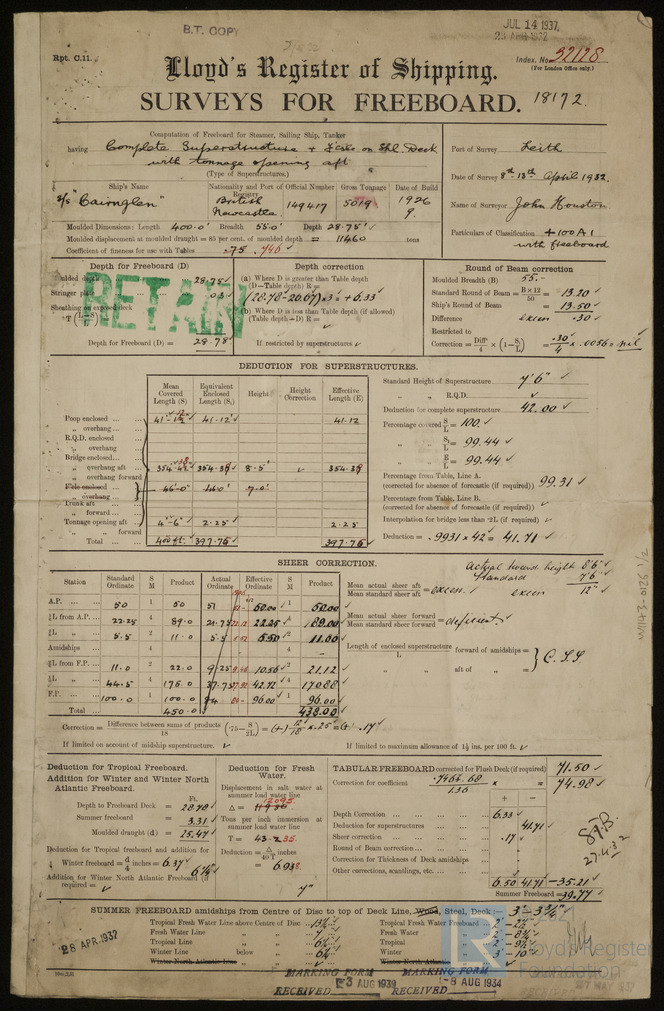 B.T. COPY
JUL 14 1937
23 APR 1932
Rpt. C.11.
Index. No. 32128
(For London Office only.)
Lloyd's Register of Shipping.
SURVEYS FOR FREEBOARD. 18172.
Computation of Freeboard for Steamer, Sailing Ship, Tanker
having Complete Superstructure + F'csle on Shl Deck
with tonnage opening aft
(Type of Superstructures.)
Port of Survey Leith
Date of Survey 8th-13th April 1932.
Name of Surveyor John Houston
Particulars of Classification +100A1
with freeboard
Ship's Name
Nationality and Port of Registry
Official Number
Gross Tonnage
Date of Build
s/s "Cairnglen"
British
Newcastle
149417
5019
1926
9.
Moulded Dimensions: Length 400.0' Breadth 55.0' Depth 28.75'
Moulded displacement at moulded draught = 85 per cent. of moulded depth = 11460 tons
Coefficient of fineness for use with Tables .75 .746
Depth for Freeboard (D)
Moulded depth 28.75
Stringer plate .03
Sheathing on exposed deck
T (L-S/L)
Depth for Freeboard (D) = 28.78
RETAIN
Depth correction
(a) Where D is greater than Table depth
(D-Table depth) R =
(28.78-26.67) × 3 = +6.33
(b) Where D is less than Table depth (if allowed)
(Table depth-D) R =
If restricted by superstructures
Round of Beam correction
Moulded Breadth (B) 55.
Standard Round of Beam = B×12/50 = 13.20
Ship's Round of Beam = 13.50
Difference excess .30
Restricted to
Correction = Diff/4 × (1-S/L) = .30/4 × .0056 = nil
DEDUCTION FOR SUPERSTRUCTURES.
Mean Covered Length (S)
Equivalent Enclosed Length (S₁)
Height
Height Correction
Effective Length (E)
Poop enclosed 41.12' 41.12
„ overhang
R.Q.D. enclosed
„ overhang
Bridge enclosed
„ overhang aft 354.39 8.5' 354.39
„ overhang forward
F'cle enclosed 46.0' 46.0' 7.0'
„ overhang
Trunk aft
„ forward
Tonnage opening aft 4'-6" 2.25 2.25
„ „ forward
Total 400ft. 397.76 397.76
Standard Height of Superstructure 7'6"
„ „ R.Q.D.
Deduction for complete superstructure 42.00
Percentage covered S/L = 100.
„ „ S₁/L = 99.44
„ „ E/L = 99.44
Percentage from Table, Line A.
(corrected for absence of forecastle (if required)) 99.31
Percentage from Table, Line B.
(corrected for absence of forecastle (if required))
Interpolation for bridge less than .2L (if required)
Deduction = .9931 × 42 = 41.71
SHEER CORRECTION.
Station
Standard Ordinate
S M
Product
Actual Ordinate
Effective Ordinate
S M
Product
A.P. 50 1 50 51 50.00 1 50.00
⅙L from A.P. 22.25 4 89.0 21.75 22.25 4 89.00
⅓L „ 5.5 2 11.0 5.5 5.50 2 11.00
Amidships 4 4
⅓L from F.P. 11.0 2 22.0 9.25 10.56 2 21.12
⅙L „ 44.5 4 178.0 37.75 42.72 4 170.88
F.P. 100.0 1 100.0 84 96.00 1 96.00
Total 450.0 438.00
Actual mound. height 8'6"
Standard 7'6"
excess 12"
Mean actual sheer aft
Mean standard sheer aft = excess.
Mean actual sheer forward
Mean standard sheer forward = deficient
Length of enclosed superstructure forward of amidships =
L
„ aft of „ =
C.S.S
Correction = Difference between sums of products/18 (.75-S/2L) = (+) 12/18 × .25 = (+) .17
If limited on account of midship superstructure.
If limited to maximum allowance of 1½ ins. per 100 ft.
Deduction for Tropical Freeboard.
Addition for Winter and Winter North
Atlantic Freeboard.
Ft.
Depth to Freeboard Deck = 28.78
Summer freeboard = 3.31
Moulded draught (d) = 25.47
Deduction for Tropical freeboard and addition for
Winter freeboard = d/4 inches = 6.37 6¼"
Addition for Winter North Atlantic Freeboard (if
required =
Deduction for Fresh
Water.
Displacement in salt water at
summer load water line
Δ = 12095
Tons per inch immersion at
summer load water line
T = 43.2
Deduction = Δ/40T inches
= 6.938
7"
TABULAR FREEBOARD corrected for Flush Deck (if required) 71.50
Correction for coefficient .746+.68/1.36 × = 74.98
+ -
Depth Correction 6.33
Deduction for superstructures 41.71
Sheer correction .17
Round of Beam correction
Correction for Thickness of Deck amidships
Other corrections, scantlings, etc.
6.50 41.71 -35.21
Summer Freeboard = 39.77
27.4.32
SUMMER FREEBOARD amidships from Centre of Disc to top of Deck Line, Wood, Steel, Deck: 3'-3¾"
Tropical Fresh Water Line above Centre of Disc 13¼"
Fresh Water Line „ „ 7"
Tropical Line „ „ 6¼"
Winter Line below „ „ 6¼"
Winter North Atlantic Line „ „
Tropical Fresh Water Freeboard 2'-2½"
Fresh Water „ 2'-8¾"
Tropical „ 2'-9½"
Winter „ 3'-10"
Winter North Atlantic „
28 APR. 1932
MARKING FORM
RECEIVED 3 AUG 1939
MARKING FORM
RECEIVED -8 AUG 1934
LR
Lloyd's Register
Foundation
W1143-0126 1/2